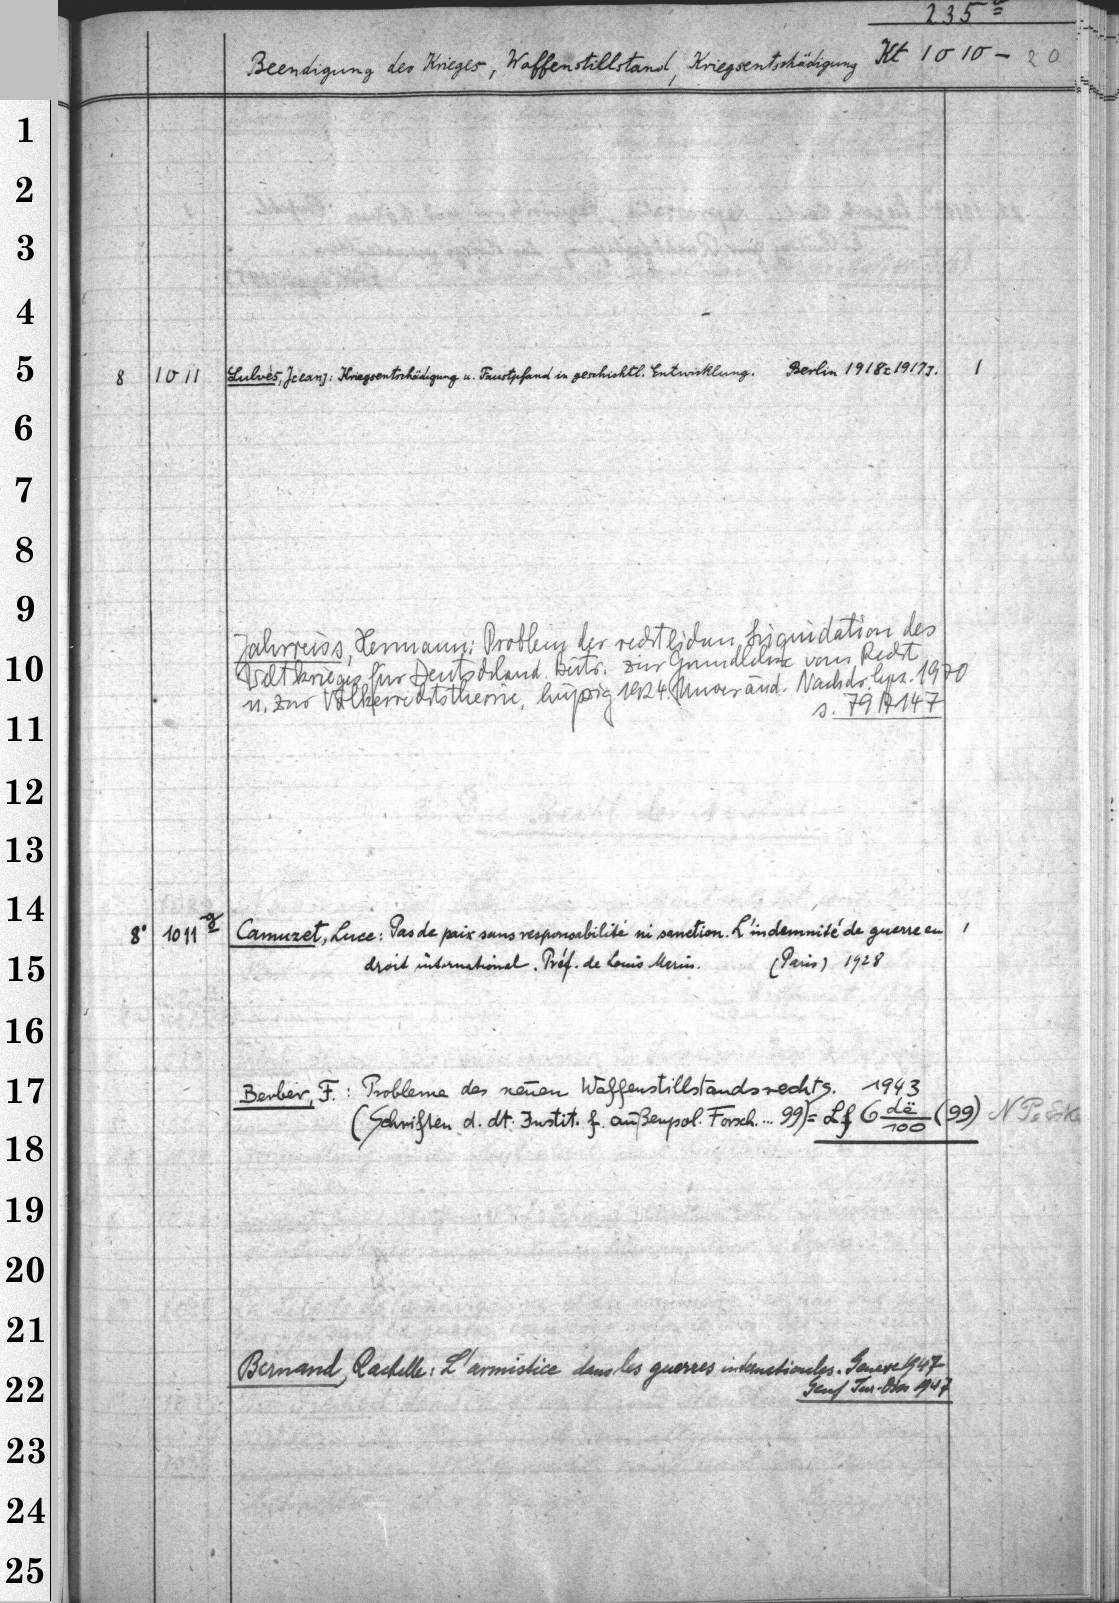 235
Beendigung des Krieges, Waffenstillstand, Kriegsentschädigung Kt 1010 - 20
1
2
3
4
5 8 1011 Lulvès, J[ean]: Kriegsentschädigung u. Faustpfand in geschichtl. Entwicklung. Berlin 1918[1917]. 1
6
7
8
9
Jahrreiss, Hermann: Problem der rechtlichen Liquidation des
10 Weltkrieges für Deutschland. Beitr. zur Grundlehre vom Recht
u. zur Völkerrechtstheorie, Leipzig 1924. (Unveränd. Nachdr. Lpz. 1970
11 s. 79 A 147
12
13
14 8° 1011 g Camuzet, Luce: Pas de paix sans responsabilité ni sanction. L'indemnité de guerre en 1
15 droit international. Préf. de Louis Marin. (Paris) 1928
16
17 Berber, F.: Probleme des neuen Waffenstillstandsrechts. 1943
(Schriften d. dt. Instit. f. außenpol. Forsch... 99) = Lf 6 dë/100 (99)
18
19
20
21
Bernand, Rachelle: L'armistice dans les guerres internationales. Genève 1947
22 Genf Jur. Diss 1947
23
24
25